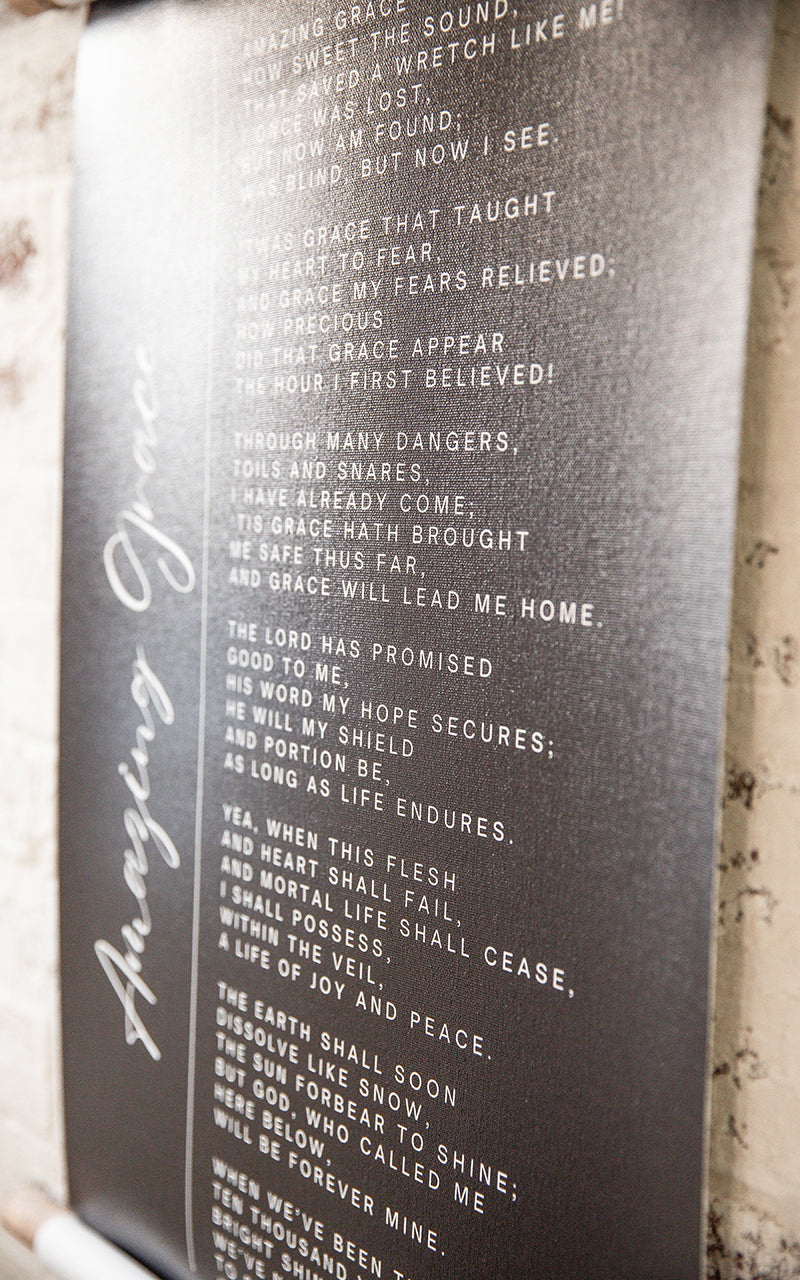 Amazing Grace
AMAZING GRACE
HOW SWEET THE SOUND,
THAT SAVED A WRETCH LIKE ME!
I ONCE WAS LOST,
BUT NOW AM FOUND;
WAS BLIND, BUT NOW I SEE.
'TWAS GRACE THAT TAUGHT
MY HEART TO FEAR,
AND GRACE MY FEARS RELIEVED;
HOW PRECIOUS
DID THAT GRACE APPEAR
THE HOUR I FIRST BELIEVED!
THROUGH MANY DANGERS,
TOILS AND SNARES,
I HAVE ALREADY COME;
'TIS GRACE HATH BROUGHT
ME SAFE THUS FAR,
AND GRACE WILL LEAD ME HOME.
THE LORD HAS PROMISED
GOOD TO ME,
HIS WORD MY HOPE SECURES;
HE WILL MY SHIELD
AND PORTION BE,
AS LONG AS LIFE ENDURES.
YEA, WHEN THIS FLESH
AND HEART SHALL FAIL,
AND MORTAL LIFE SHALL CEASE,
I SHALL POSSESS,
WITHIN THE VEIL,
A LIFE OF JOY AND PEACE.
THE EARTH SHALL SOON
DISSOLVE LIKE SNOW,
THE SUN FORBEAR TO SHINE;
BUT GOD, WHO CALLED ME
HERE BELOW,
WILL BE FOREVER MINE.
WHEN WE'VE BEEN
TEN THOUSAND
BRIGHT
WE'VE
TO